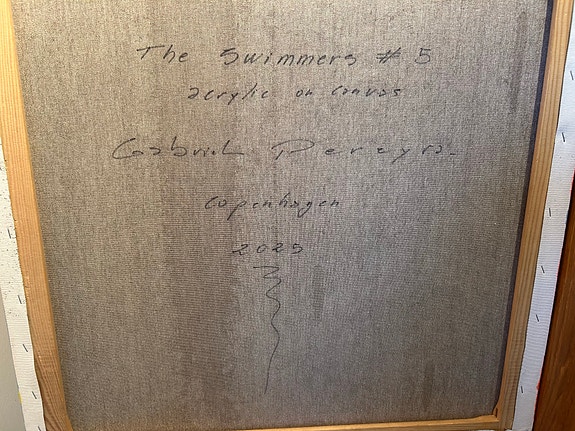 The Swimmers # 5
acrylic on canvas
Gabriel Pereyra.
Copenhagen
2025